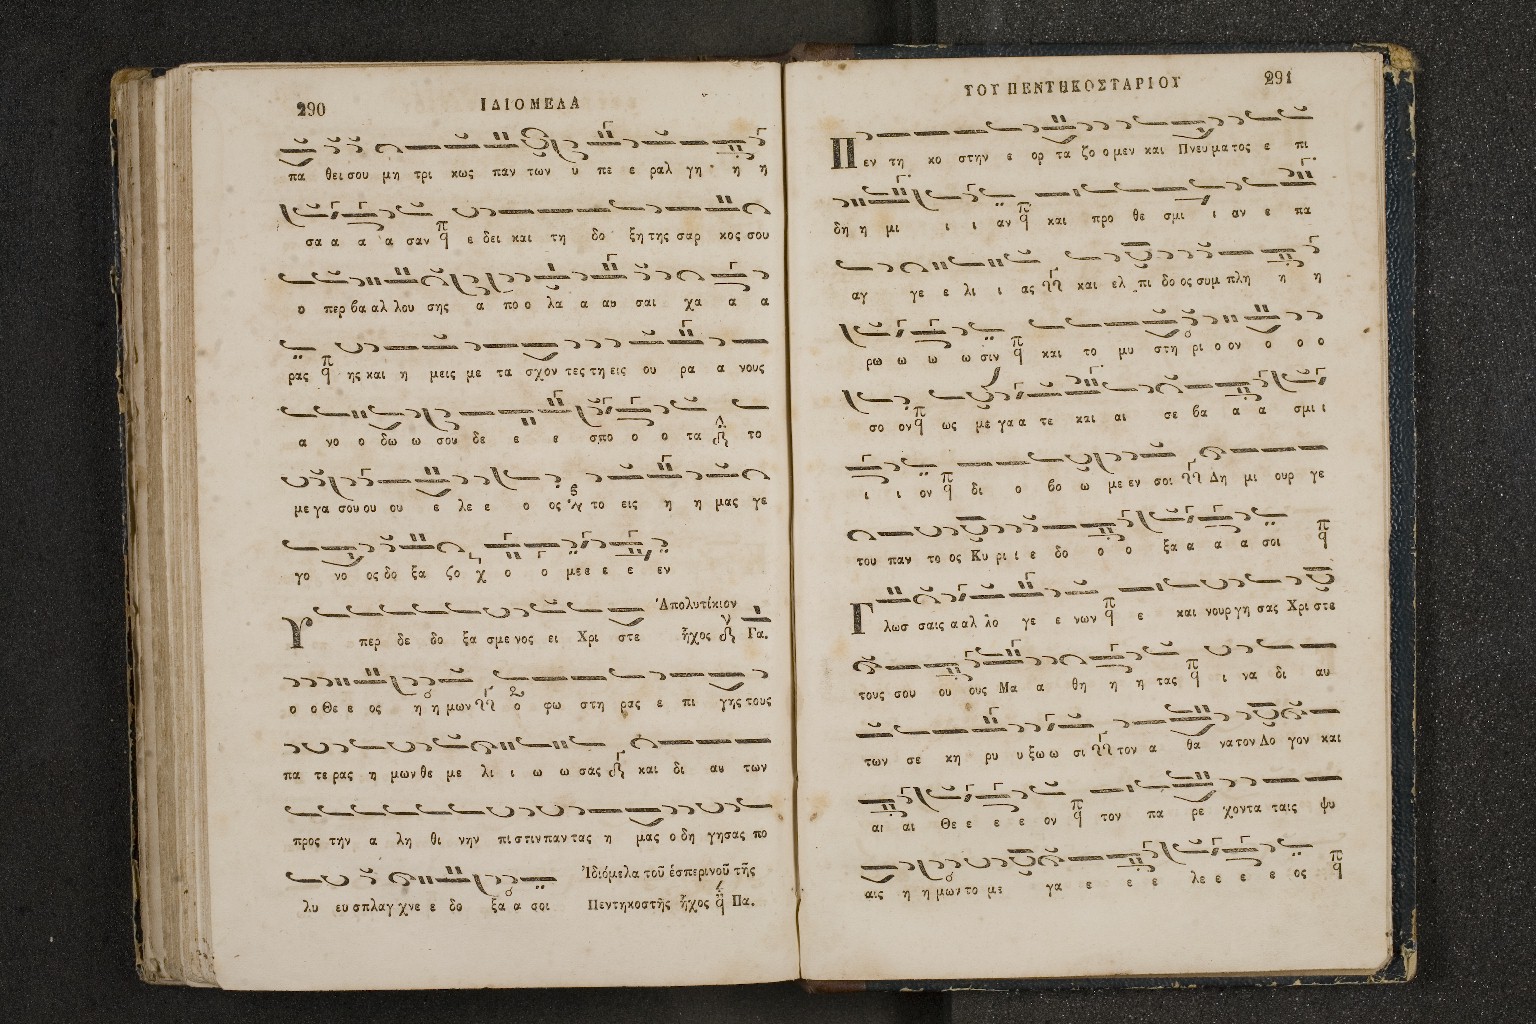 290 ΙΔΙΟΜΕΛΑ
πα θει σου μη τρι κως παν των υ πε ε ραλ γη η η
σα α α α σαν ε δει και τη δο ξη της σαρ κος σου
ο περ βα αλ λου σης α πο ο λα α αυ σαι χα α α
ρας ης και η μεις με τα σχον τες τη εις ου ρα α νους
α νο ο δω ω σου δε ε ε σπο ο ο τα το
με γα σου ου ου ε λε ε ο ος το εις η η μας γε
γο νο ος δο ξα ζο χ ο ο με ε ε ε εν
Ἀπολυτίκιον
Υ περ δε δο ξα σμε νος ει Χρι στε ἦχος Γα.
ο ο Θε ε ος η η μων ο φω στη ρας ε πι γης τους
πα τε ρας η μων θε με λι ι ω ω σας και δι αυ των
προς την α λη θι νην πι στιν παν τας η μας ο δη γησας πο
Ἰδιόμελα τοῦ ἑσπερινοῦ τῆς
λυ ευ σπλαγ χνε ε δο ξα α σοι Πεντηκοστῆς ἦχος Πα.
ΤΟΥ ΠΕΝΤΗΚΟΣΤΑΡΙΟΥ 291
Π εν τη κο στην ε ορ τα ζο ο μεν και Πνευ μα τος ε πι
δη η μι ι ι αν και προ θε σμι ι αν ε πα
αγ γε ε λι ι ας και ελ πι δο ος συμ πλη η η
ρω ω ω ω σιν και το μυ στη ρι ο ον ο ο ο
σο ον ως με γα α τε και αι σε βα α α σμι ι
ι ι ον δι ο βο ω με εν σοι Δη μι ουρ γε
του παν το ος Κυ ρι ι ε δο ο ο ξα α α α σοι
Γ λωσ σαις α αλ λο γε ε νων ε και νουρ γη σας Χρι στε
τους σου ου ους Μα α θη η η τας ι να δι αυ
των σε κη ρυ υ ξω ω σι τον α θα να τον Λο γον και
αι αι Θε ε ε ε ον τον πα ρε χοντα ταις ψυ
αις η η μων το με γα ε ε ε λε ε ε ε ος